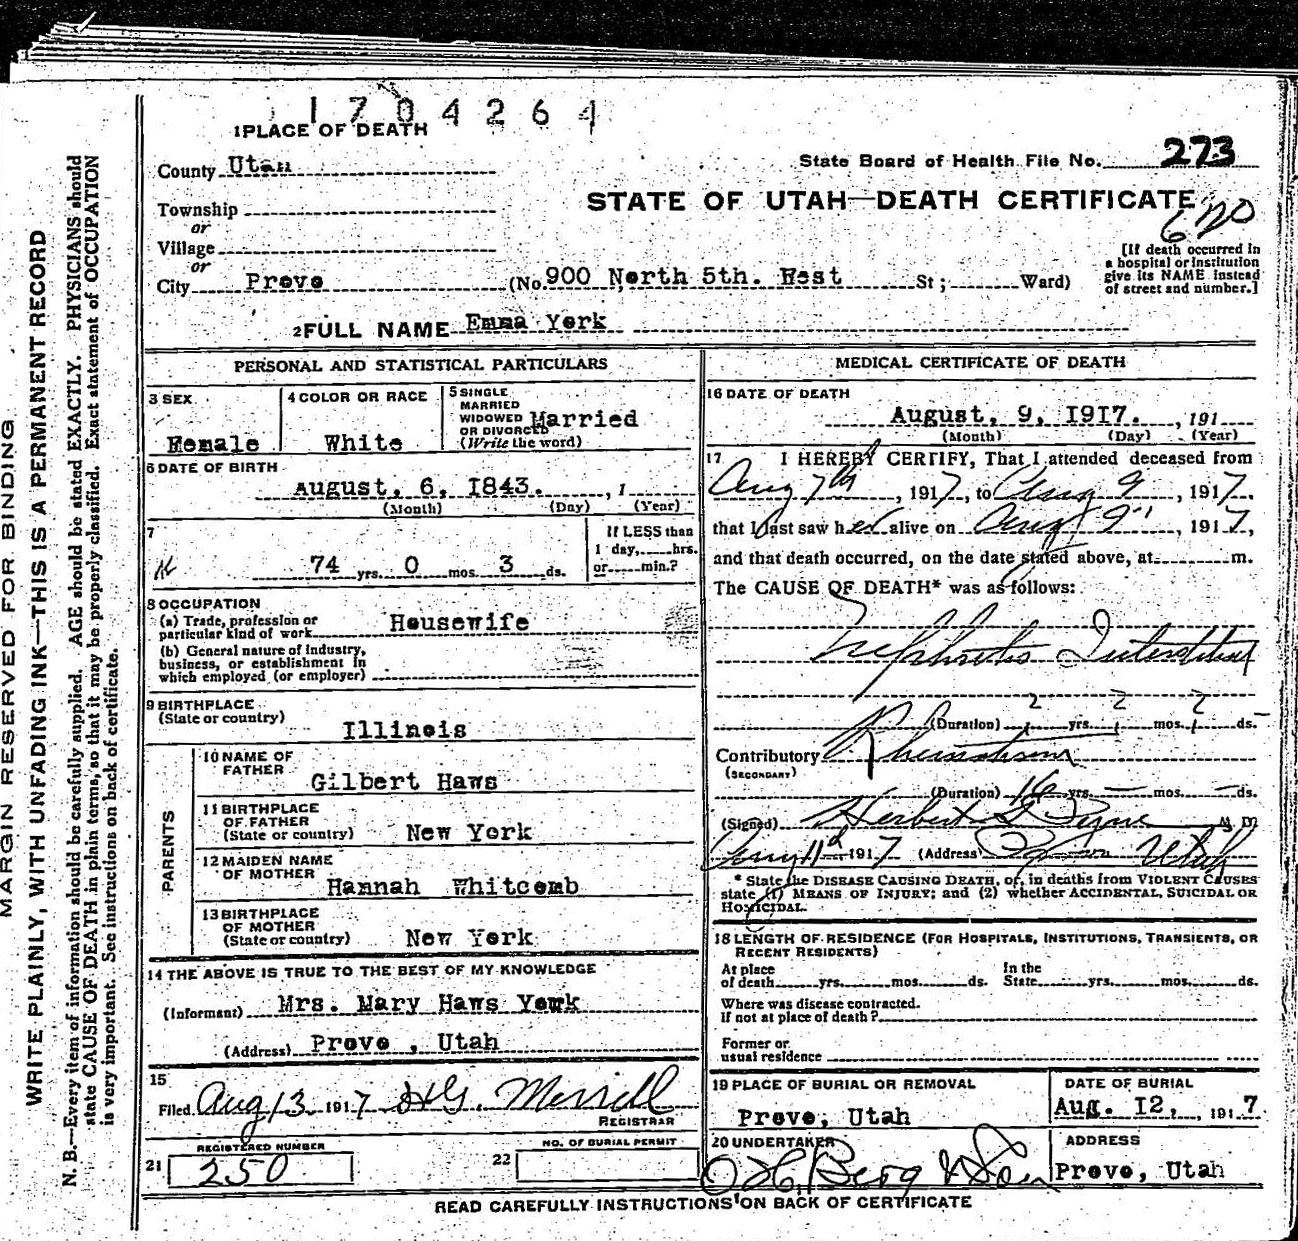 1704264
1 PLACE OF DEATH
County Utah
State Board of Health File No. 273
STATE OF UTAH—DEATH CERTIFICATE
620
Township
or
Village
or
City Provo (No. 900 North 5th. West St; Ward)
[If death occurred in
a hospital or institution
give its NAME instead
of street and number.]
2 FULL NAME Emma York
PERSONAL AND STATISTICAL PARTICULARS
3 SEX
Female
4 COLOR OR RACE
White
5 SINGLE
MARRIED
WIDOWED
OR DIVORCED
(Write the word)
Married
6 DATE OF BIRTH
August, 6, 1843. , 1
(Month) (Day) (Year)
7
74 yrs. 0 mos. 3 ds.
If LESS than
1 day, hrs.
or min.?
8 OCCUPATION
(a) Trade, profession or
particular kind of work Housewife
(b) General nature of industry,
business, or establishment in
which employed (or employer)
9 BIRTHPLACE
(State or country)
Illinois
PARENTS
10 NAME OF
FATHER
Gilbert Haws
11 BIRTHPLACE
OF FATHER
(State or country) New York
12 MAIDEN NAME
OF MOTHER
Hannah Whitcomb
13 BIRTHPLACE
OF MOTHER
(State or country) New York
14 THE ABOVE IS TRUE TO THE BEST OF MY KNOWLEDGE
(Informant) Mrs. Mary Haws York
(Address) Provo , Utah
15
Filed Aug 13 1917 H G. Merrill
REGISTRAR
REGISTERED NUMBER
21 250
NO. OF BURIAL PERMIT
22
MEDICAL CERTIFICATE OF DEATH
16 DATE OF DEATH
August, 9, 1917. , 191
(Month) (Day) (Year)
17 I HEREBY CERTIFY, That I attended deceased from
Aug 7th , 1917, to Aug 9 , 1917.
that I last saw her alive on Aug 9" , 1917,
and that death occurred, on the date stated above, at m.
The CAUSE OF DEATH* was as follows:
Nephritis Interstitial
(Duration) yrs. mos. ds.
Contributory Rheumatism
(SECONDARY)
(Duration) 16 yrs. — mos. — ds.
(Signed) Herbert S Pyne M D
Aug 11 1917 (Address) Provo Utah
* State the DISEASE CAUSING DEATH, or, in deaths from VIOLENT CAUSES
state (1) MEANS OF INJURY; and (2) whether ACCIDENTAL, SUICIDAL OR
HOMICIDAL.
18 LENGTH OF RESIDENCE (FOR HOSPITALS, INSTITUTIONS, TRANSIENTS, OR
RECENT RESIDENTS)
At place
of death yrs. mos. ds.
In the
State yrs. mos. ds.
Where was disease contracted.
If not at place of death?
Former or
usual residence
19 PLACE OF BURIAL OR REMOVAL
Provo, Utah
DATE OF BURIAL
Aug. 12, , 1917
20 UNDERTAKER
O H. Berg & Son
ADDRESS
Provo, Utah
READ CAREFULLY INSTRUCTIONS ON BACK OF CERTIFICATE
MARGIN RESERVED FOR BINDING
WRITE PLAINLY, WITH UNFADING INK—THIS IS A PERMANENT RECORD
N. B.—Every item of information should be carefully supplied. AGE should be stated EXACTLY. PHYSICIANS should
state CAUSE OF DEATH in plain terms, so that it may be properly classified. Exact statement of OCCUPATION
is very important. See instructions on back of certificate.